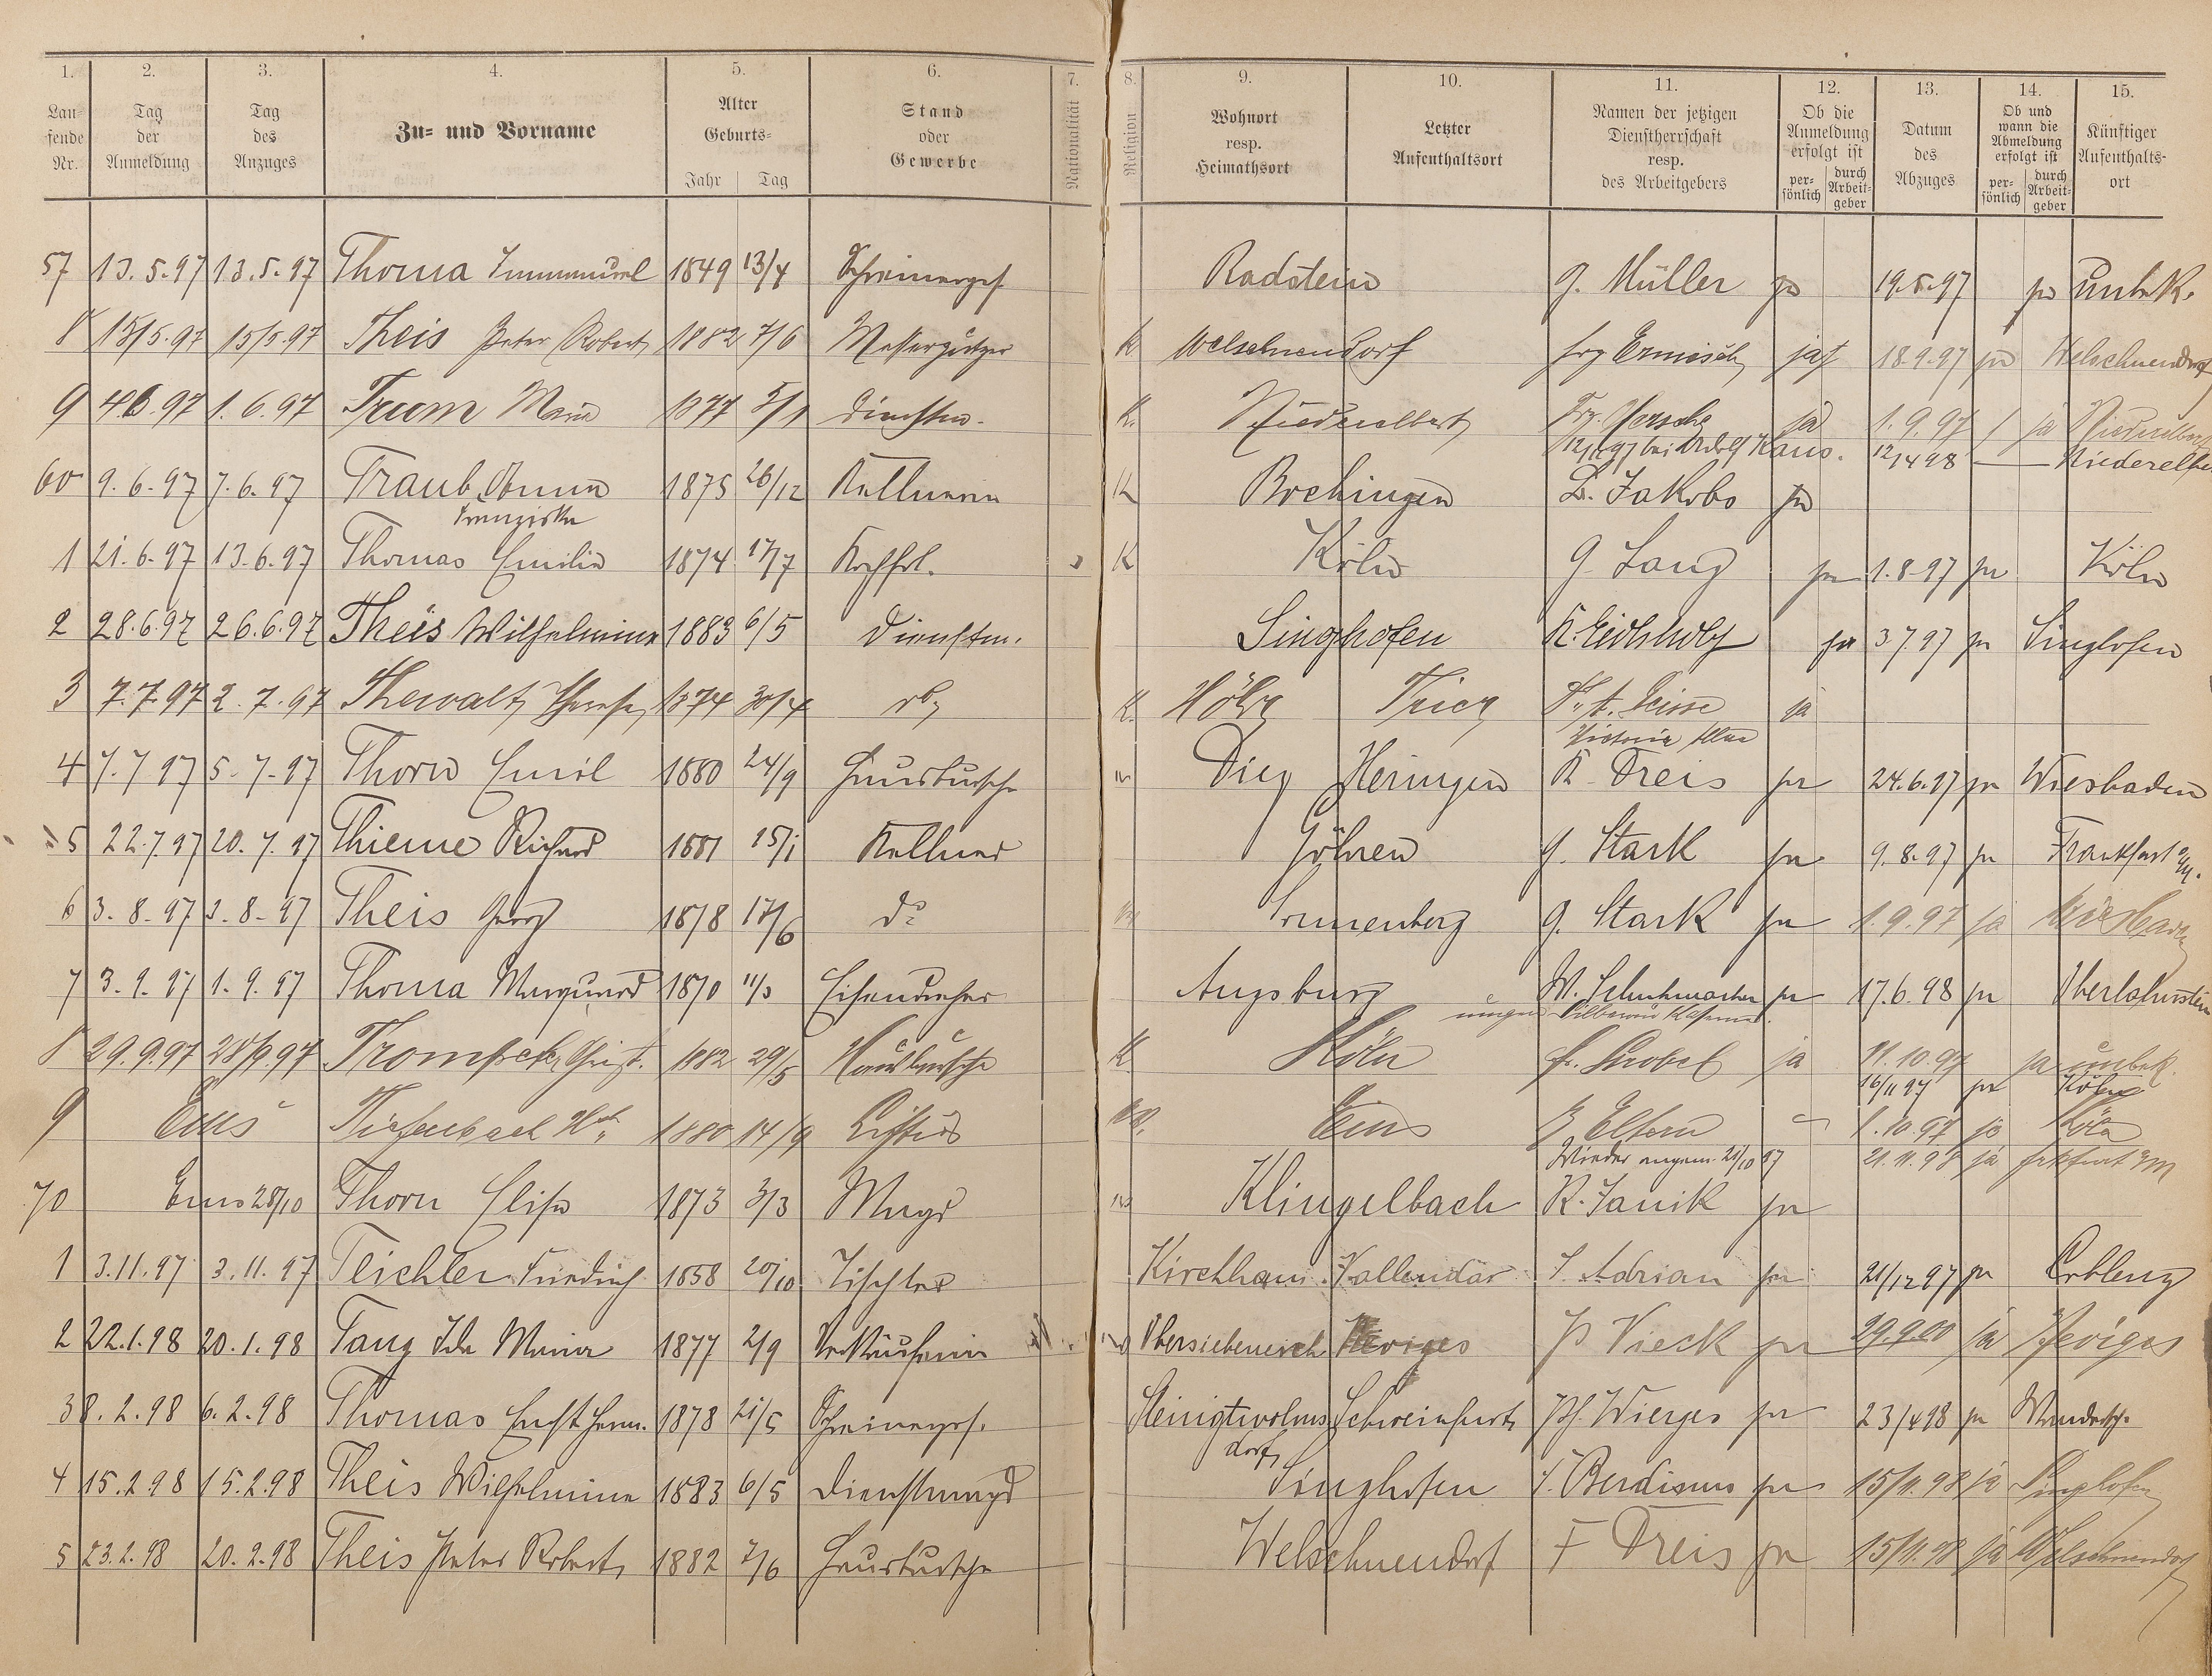 1. 2. 3. 4. 5. 6. 7. 8. 9. 10. 11. 12. 13. 14. 15.
Lau-fende Nr. Tag der Anmeldung Tag des Anzuges Zu- und Vorname Alter Geburts- Jahr Tag Stand oder Gewerbe Nationalität Religion Wohnort resp. Heimathsort Letzter Aufenthaltsort Namen der jetzigen Dienstherrschaft resp. des Arbeitgebers Ob die Anmeldung erfolgt ist per-sönlich durch Arbeit-geber Datum des Abzuges Ob und wann die Abmeldung erfolgt ist per-sönlich durch Arbeit-geber Künftiger Aufenthalts-ort
57 13.5.97 13.5.97 Thoma Immanuel 1849 13/4 Schreinerges Radstein G. Müller ja 19.5.97 ja unbk.
8 15/5.97 15/5.97 Theis Peter Robert 1882 7/6 K Welschnendorf Ermisch ja 18.9.97 ja Welschnendorf
9 4.6.97 1.6.97 Trum Maria 1877 Dienstm. K. Niederelbert ja 1.9.97 ja Niederelbert
12/11 97 bei Kaus. 12/4 98 — Niederelbert
60 9.6.97 7.6.97 Traub Anna 1875 26/12 Kellnerin K Bochingen L. Jakobs ja
Franziska
1 21.6.97 13.6.97 Thomas Emilie 1874 17/7 K Köln G. Lang ja 1.8.97 ja Köln
2 28.6.97 26.6.97 Theis Wilhelmine 1883 6/5 Dienstm. Singhofen K. Eichholz ja 3.7.97 ja Singhofen
3 7.7.97 2.7.97 Thewalt Therese 1874 30/4 K. Höhr Trier ja
Victoria
4 7.7.97 5.7.97 Thorn Emil 1880 24/9 Hausbursche Diez Heringen K. Dreis ja 24.6.97 ja Wiesbaden
5 22.7.97 20.7.97 Thieme Richard 1881 15/1 Kellner Göhren G. Stark ja 9.8.97 ja Frankfurt a/M.
6 3.8.97 3.8.97 Theis Georg 1878 17/6 do Sonnenberg G. Stark ja 1.9.97 ja Wiesbaden
7 3.9.97 1.9.97 Thoma Marquard 1870 11/3 Eisendreher Augsburg W. Schuhmacher ja 17.6.98 ja Oberlahnstein
8 29.9.97 28/9 97 Christ. 1882 29/5 Hausbursche K Köln Fr. Strobel ja 11.10.97 ja unbek.
16/11 97 ja Köln
9 Ems Tiefenbach Hch. 1880 14/9 Ems Z. Eltern 1.10.97 ja Köln
Wieder angem. 21/10 97 21.11.98 ja Frkfurt a/M
70 Ems 28/10 Thorn Elise 1873 3/3 Magd Klingelbach R. Janik ja
1 3.11.97 3.11.97 Teichler Friedrich 1858 20/10 Tischler Kirchhain Vallendar J. Adrian ja 21/12 97 ja Coblenz
2 22.1.98 20.1.98 Tang Ida Maria 1877 2/9 Verkäuferin Neviges P. Vieck ja 29.9.00 ja Neviges
3 8.2.98 6.2.98 Thomas Ernst Herm. 1878 21/5 Schreinerges. Steinigtwolms Schweinfurt Ph. Wierges ja 23/4 98 ja Wandersch.
dorf
4 15.2.98 15.2.98 Theis Wilhelmine 1883 6/5 Dienstmagd Singhofen ja 15/11.98 ja Singhofen
5 23.2.98 20.2.98 Theis Peter Robert 1882 7/6 Hausbursche Welschnendorf F Dreis ja 15/11.98 ja Welschnendorf